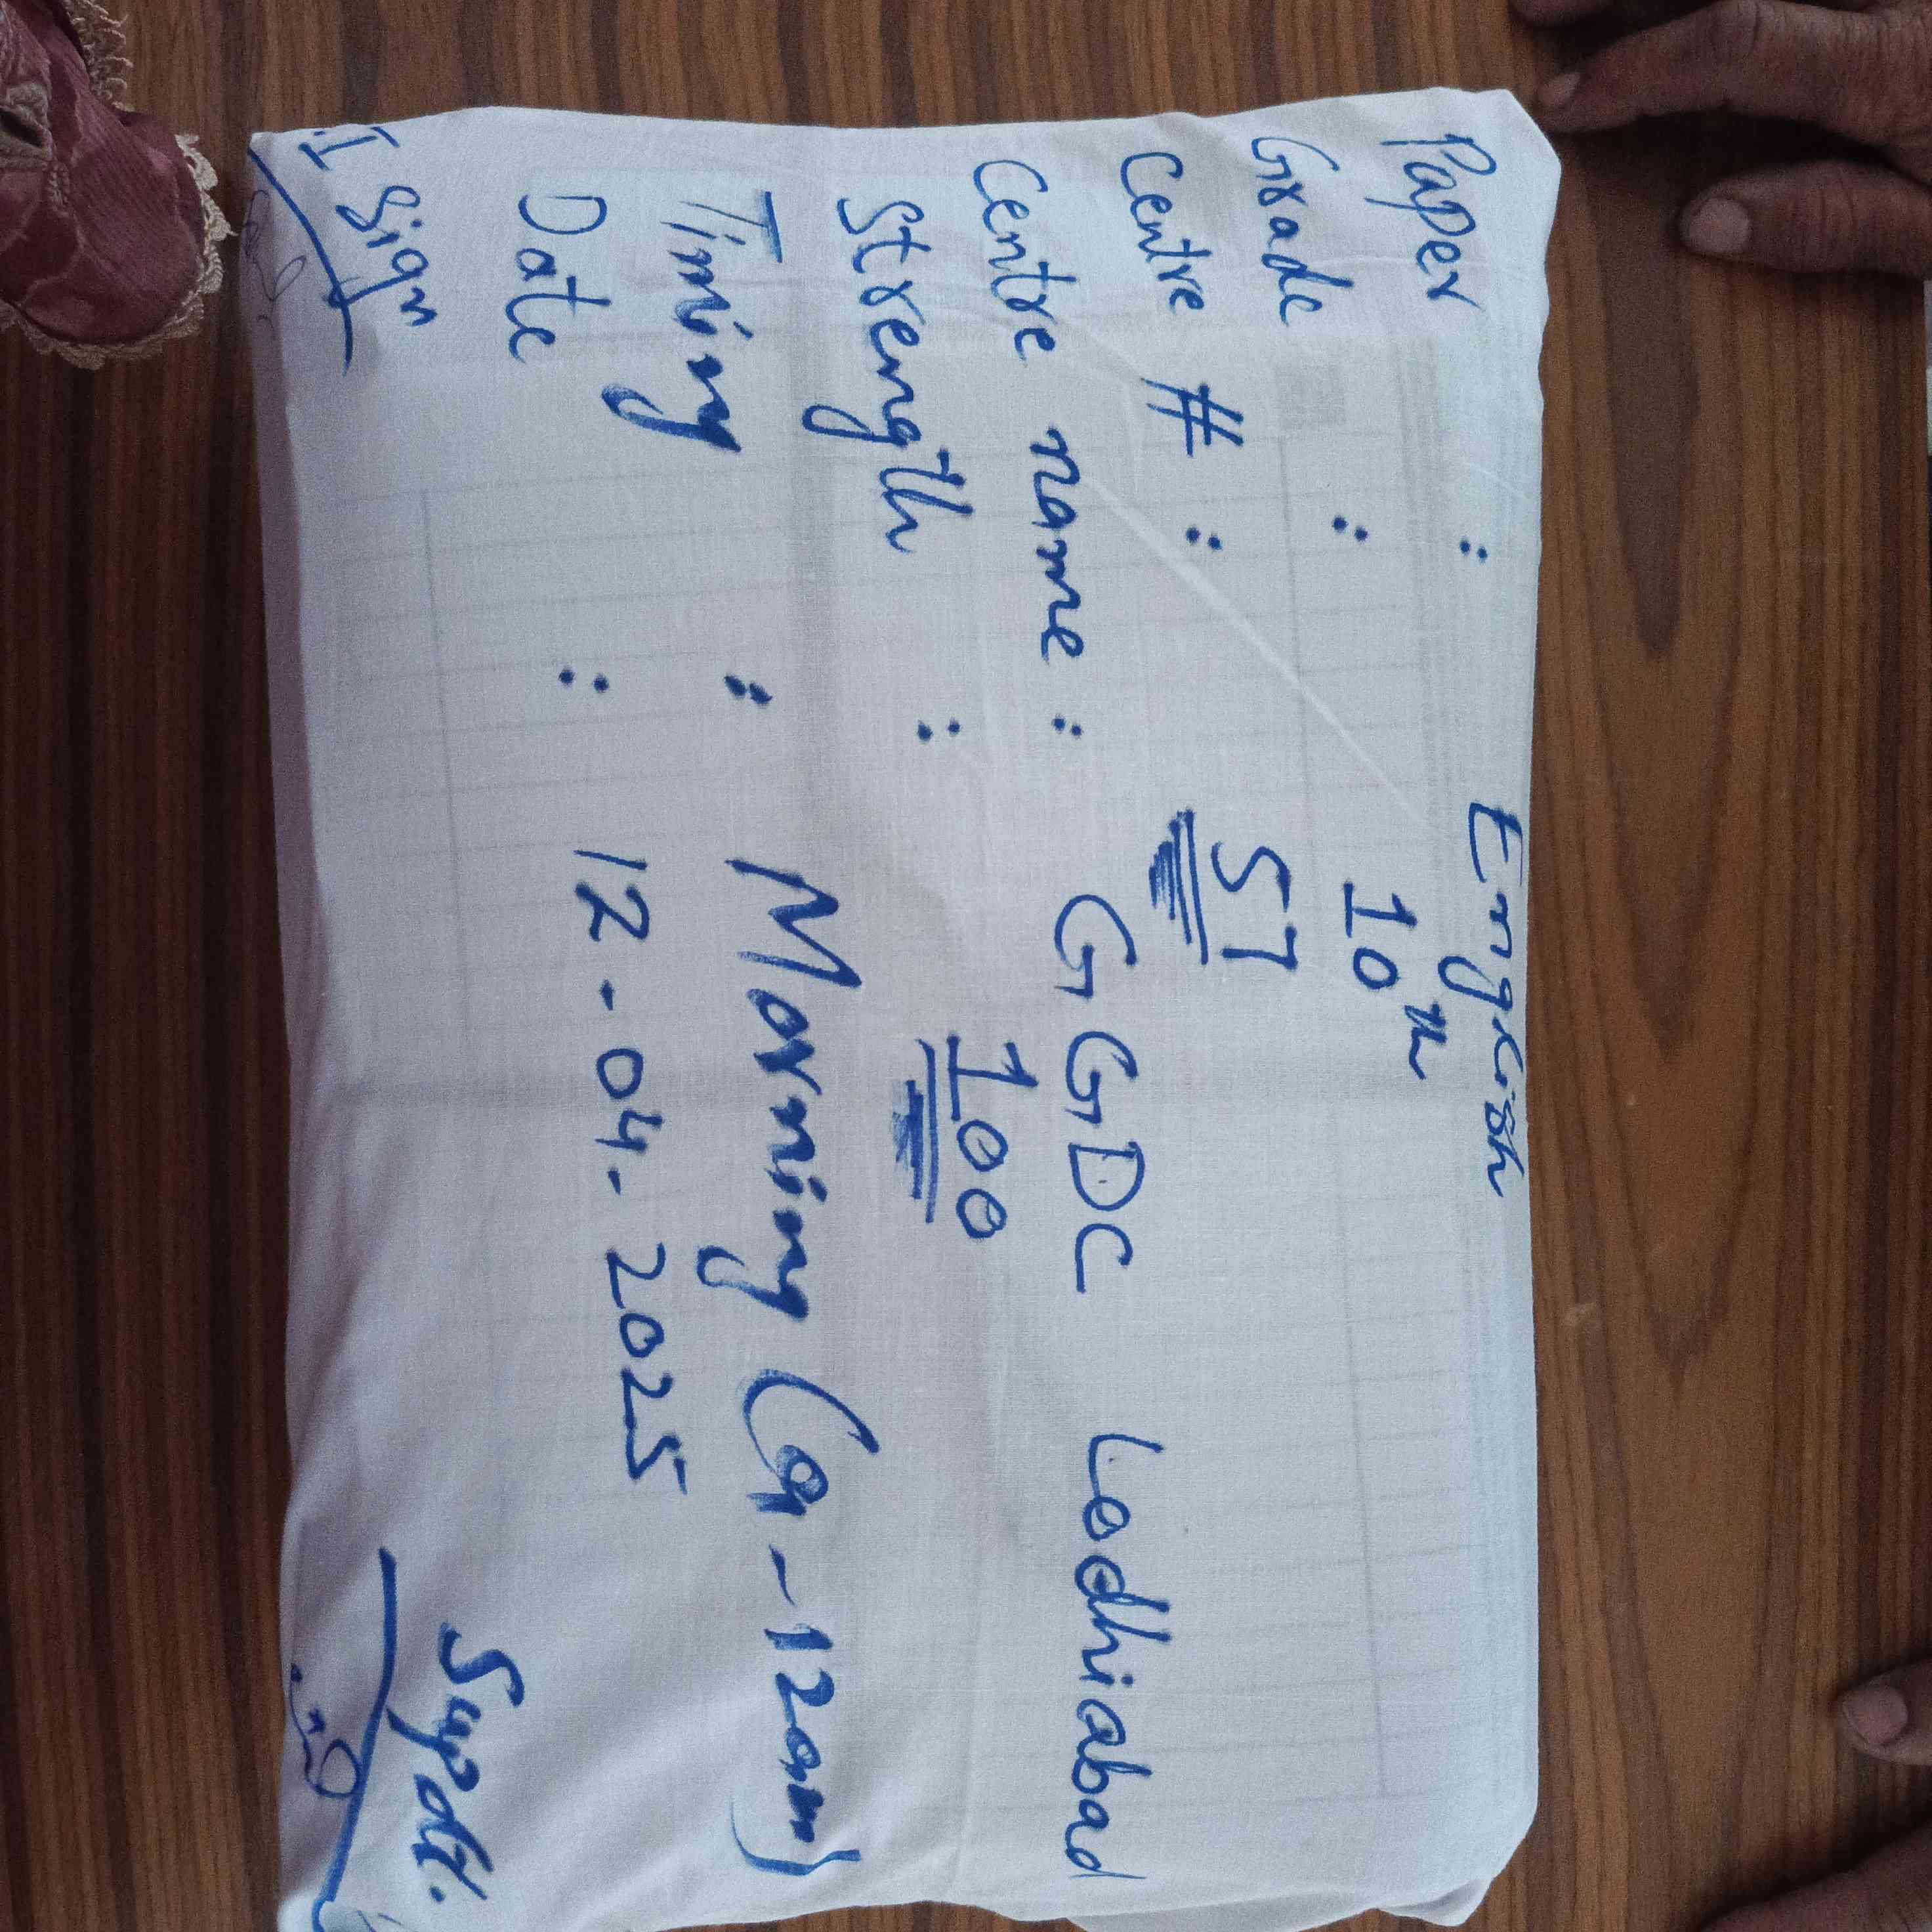 Paper : English
Grade : 10th
Centre # : 57
Centre name : GGDC Lodhiabad
Strength : 100
Timing : Morning (9-12am)
Date : 12-04-2025
I Sign
Supdt.